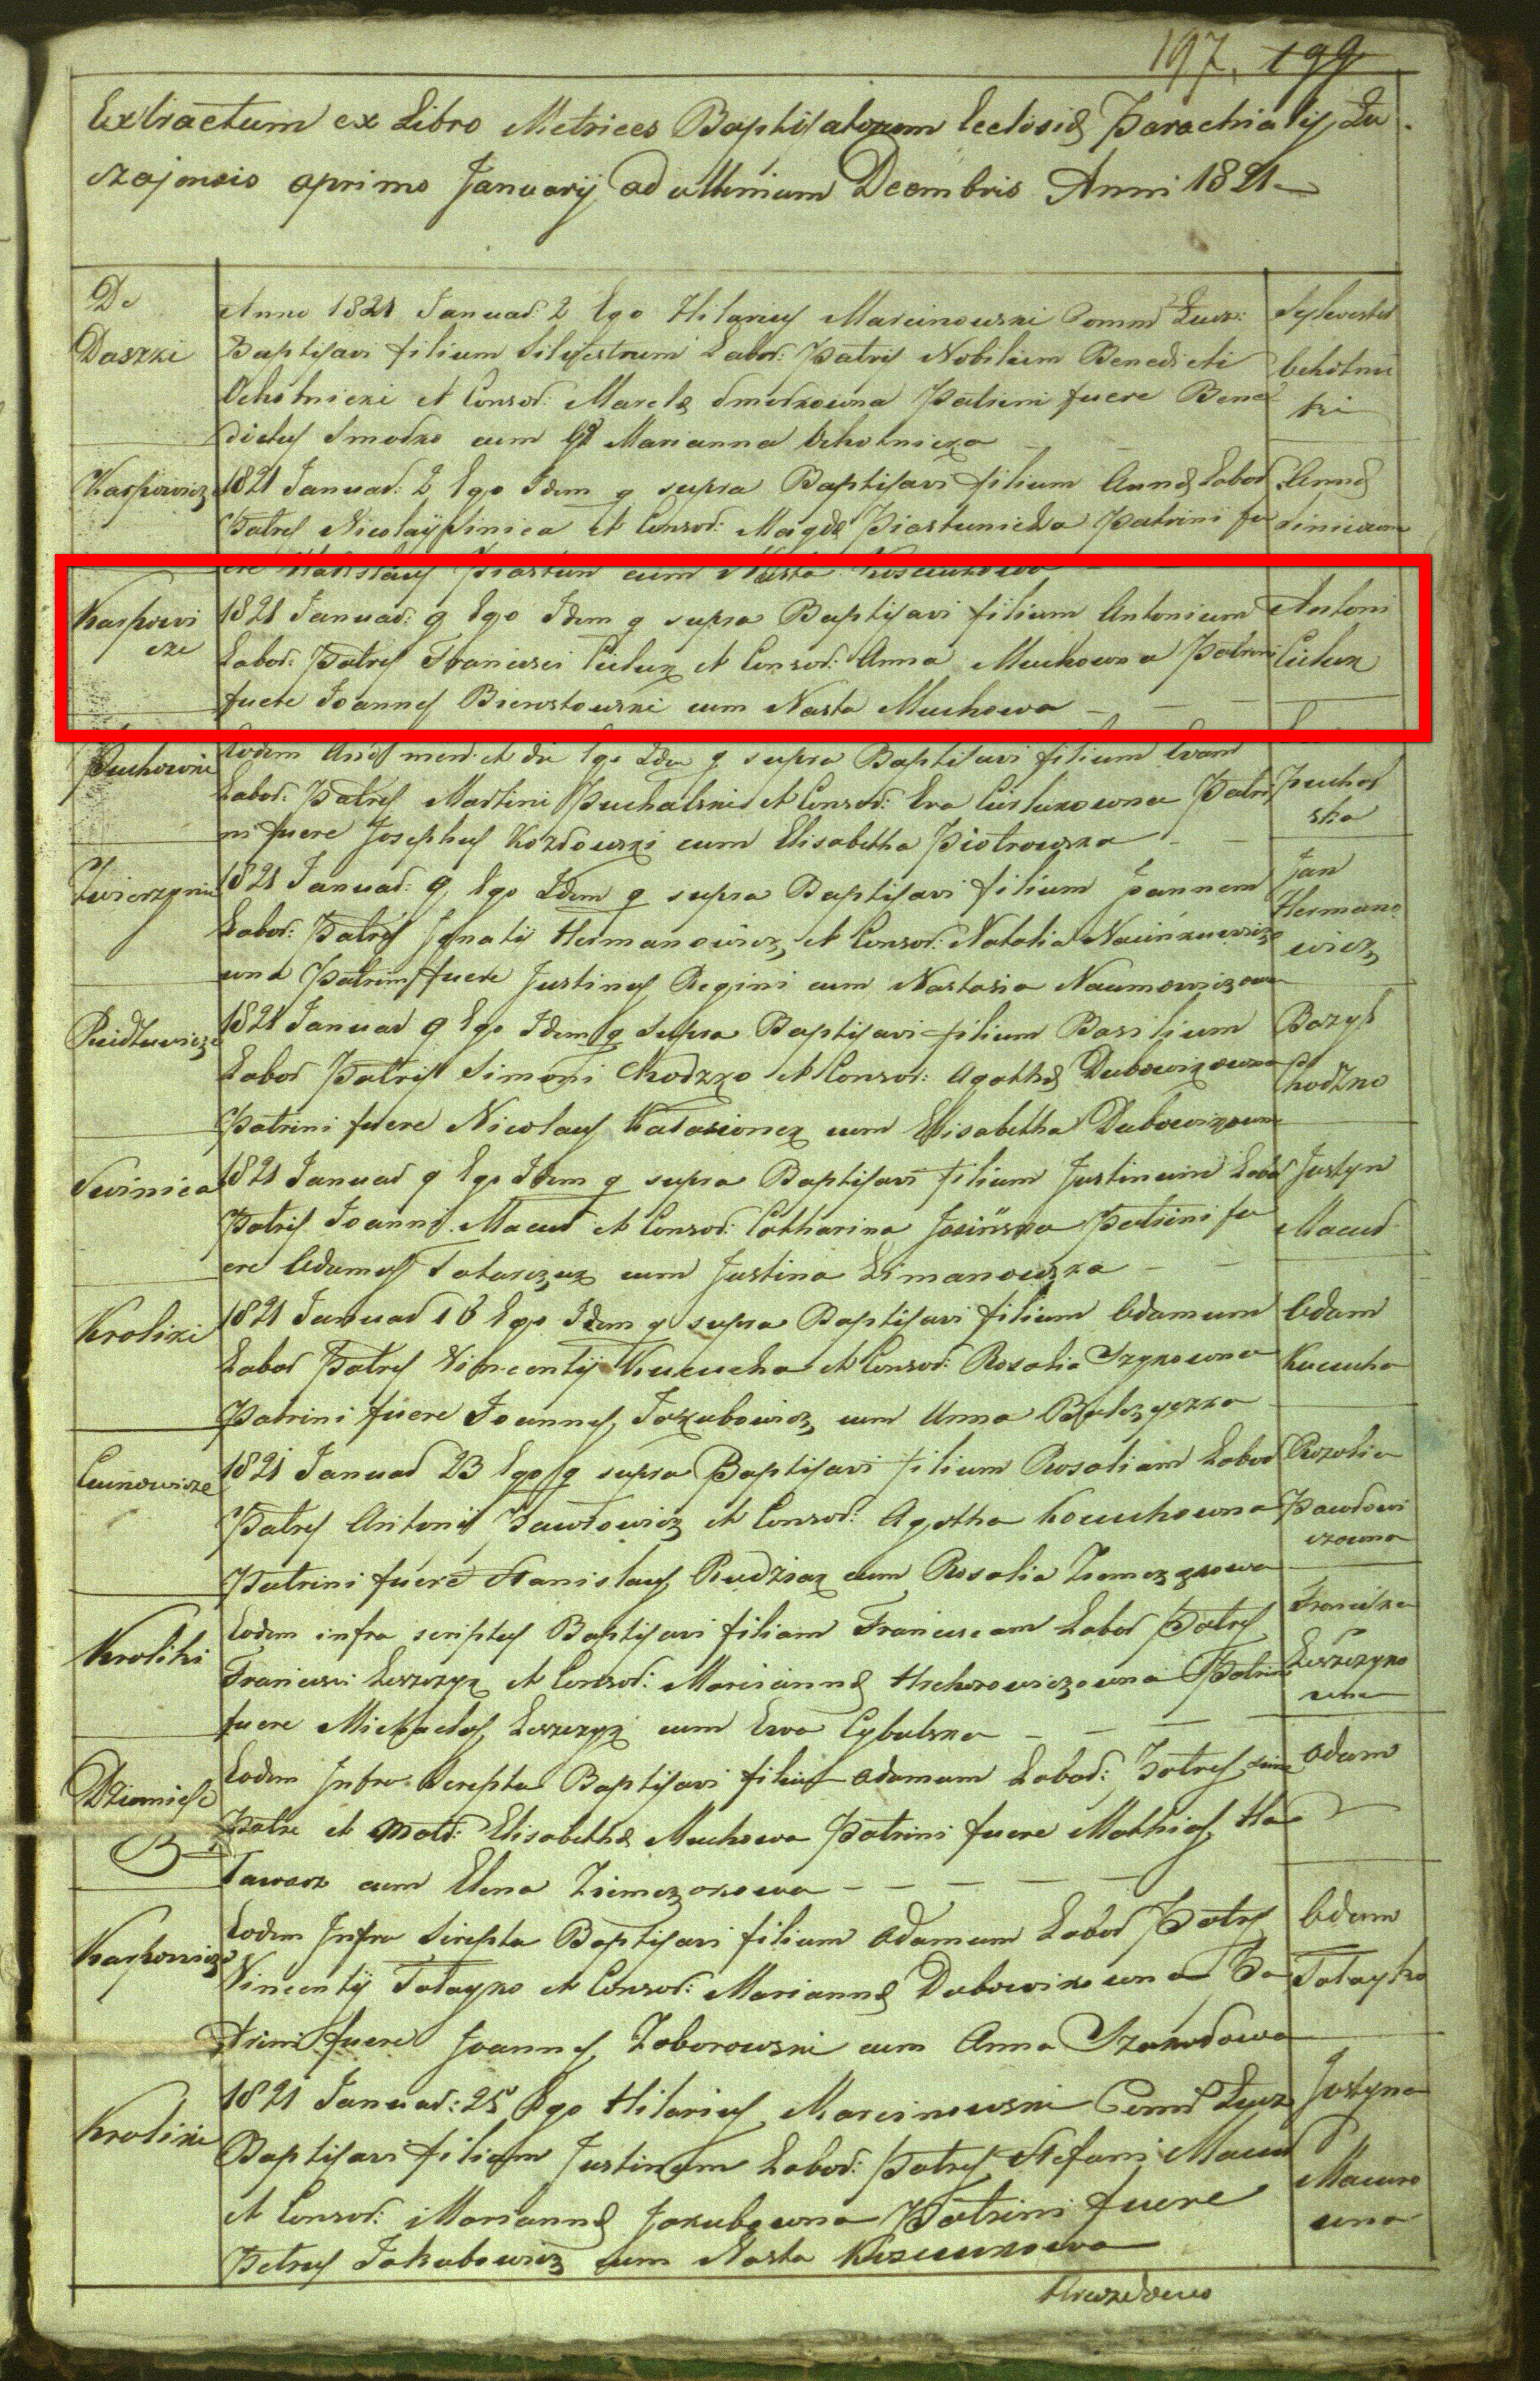 197. 199
Extractum ex Libro Metrices Baptisatorum Ecclesiæ Parochialis Łu
czajensis a primo Januarij ad ultimum Decembris Anni 1821
De
Daszki
Anno 1821 Januar: 2 Ego Hilarius Marcinowski Comm Łucz:
Baptisavi filium Silvestrum Labor: Patris Nobilium Benedicti
Ochotnicki et Consor: Marcelæ Smodkowna Patrini fuere Bene
dictus Smodko cum Marianna Ochotnicka
Sylwester
Ochotnic
ki
Karpowicze
1821 Januar: 2 Ego Idem q supra Baptisavi filium Annæ Labor
Patris Nicolaij Sinica et Consor: Magdæ Piastunicka Patrini fu
ere Stanislaus Piastun cum Nasta
Annæ
Karpowi
cze
1821 Januar: 9 Ego Idem q supra Baptisavi filium Antonium
Labor: Patris Francisci Cieluk et Consor: Anna Muchowna Patrini
fuere Joannes Bierstowski cum Nasta Muchowa
Antoni
Cieluk
Eodem Anno mense et die Ego Idem q supra Baptisavi filium Evam
Labor: Patris Martini Puchalski et Consor: Eva Cielukowna Patri
ni fuere Josephus Kozdowski cum Elisabetha Piotrowska
Puchal
ska
1821 Januar: 9 Ego Idem q supra Baptisavi filium Joannem
Labor: Patris Jgnatij Hermanowicz et Consor: Natalia
wna Patrini fuere Justinus Regini cum Nastasia Naumowiczowa
Jan
Hermano
wicz
1821 Januar 9 Ego Idem q supra Baptisavi filium Basilium
Labor Patris Simoni Chodzko et Consor: Agathæ Dubowikowna
Patrini fuere Nicolaus cum Elisabetha Dubowikowna
Bazyl
Chodzko
Swinica
1821 Januar 9 Ego Idem q supra Baptisavi filium Justinum Labor
Patris Joanni Macud et Consor: Catharina Jasinska Patrini fu
ere Adamus Tatarczuk cum Justina Limanowska
Justyn
Macud
Kroliki
1821 Januar 16 Ego Idem q supra Baptisavi filium Adamum
Labor Patris Vincentij Kucucha et Consor: Rosalia Szykowna
Patrini fuere Joannes Jakubowicz cum Anna
Adam
Kucucha
Cuinowicze
1821 Januar 23 Ego q supra Baptisavi filium Rosaliam Labor
Patris Antonij Pawłowicz et Consor: Agatha Kocuchowna
Patrini fuere Stanislaus Rudziak cum Rosalia
Rozalia
Pawłowi
czowna
Kroliki
Eodem infra scriptus Baptisavi filiam Franciscam Labor Patris
Francisci Leszczyk et Consor: Mariannæ Hrehorowiczowna Patrini
fuere Michaelus Leszczyk cum Ewa Cybulska
Franciszka
Leszczyko
wna
Eodem Infra Scripta Baptisavi filium Adamum Labor: Patris sine
Patre et Matr: Elisabethæ Muchowa Patrini fuere Mathias Ha
cum Elena
Adam
Karpowicze
Eodem Infra Scripta Baptisavi filium Adamum Labor Patris
Vincentij Tałayko et Consor: Mariannæ Dubowikowna Pa
trini fuere Joannes Zaborowski cum Anna
Adam
Tałayko
Kroliki
1821 Januar: 25 Ego Hilarius Marcinowski Comm Łucz
Baptisavi filiam Justinam Labor: Patris Stefani Macud
et Consor: Mariannæ Jakubowna Patrini fuere
Petrus Jakubowicz cum Nasta
Justyna
Macuro
wna